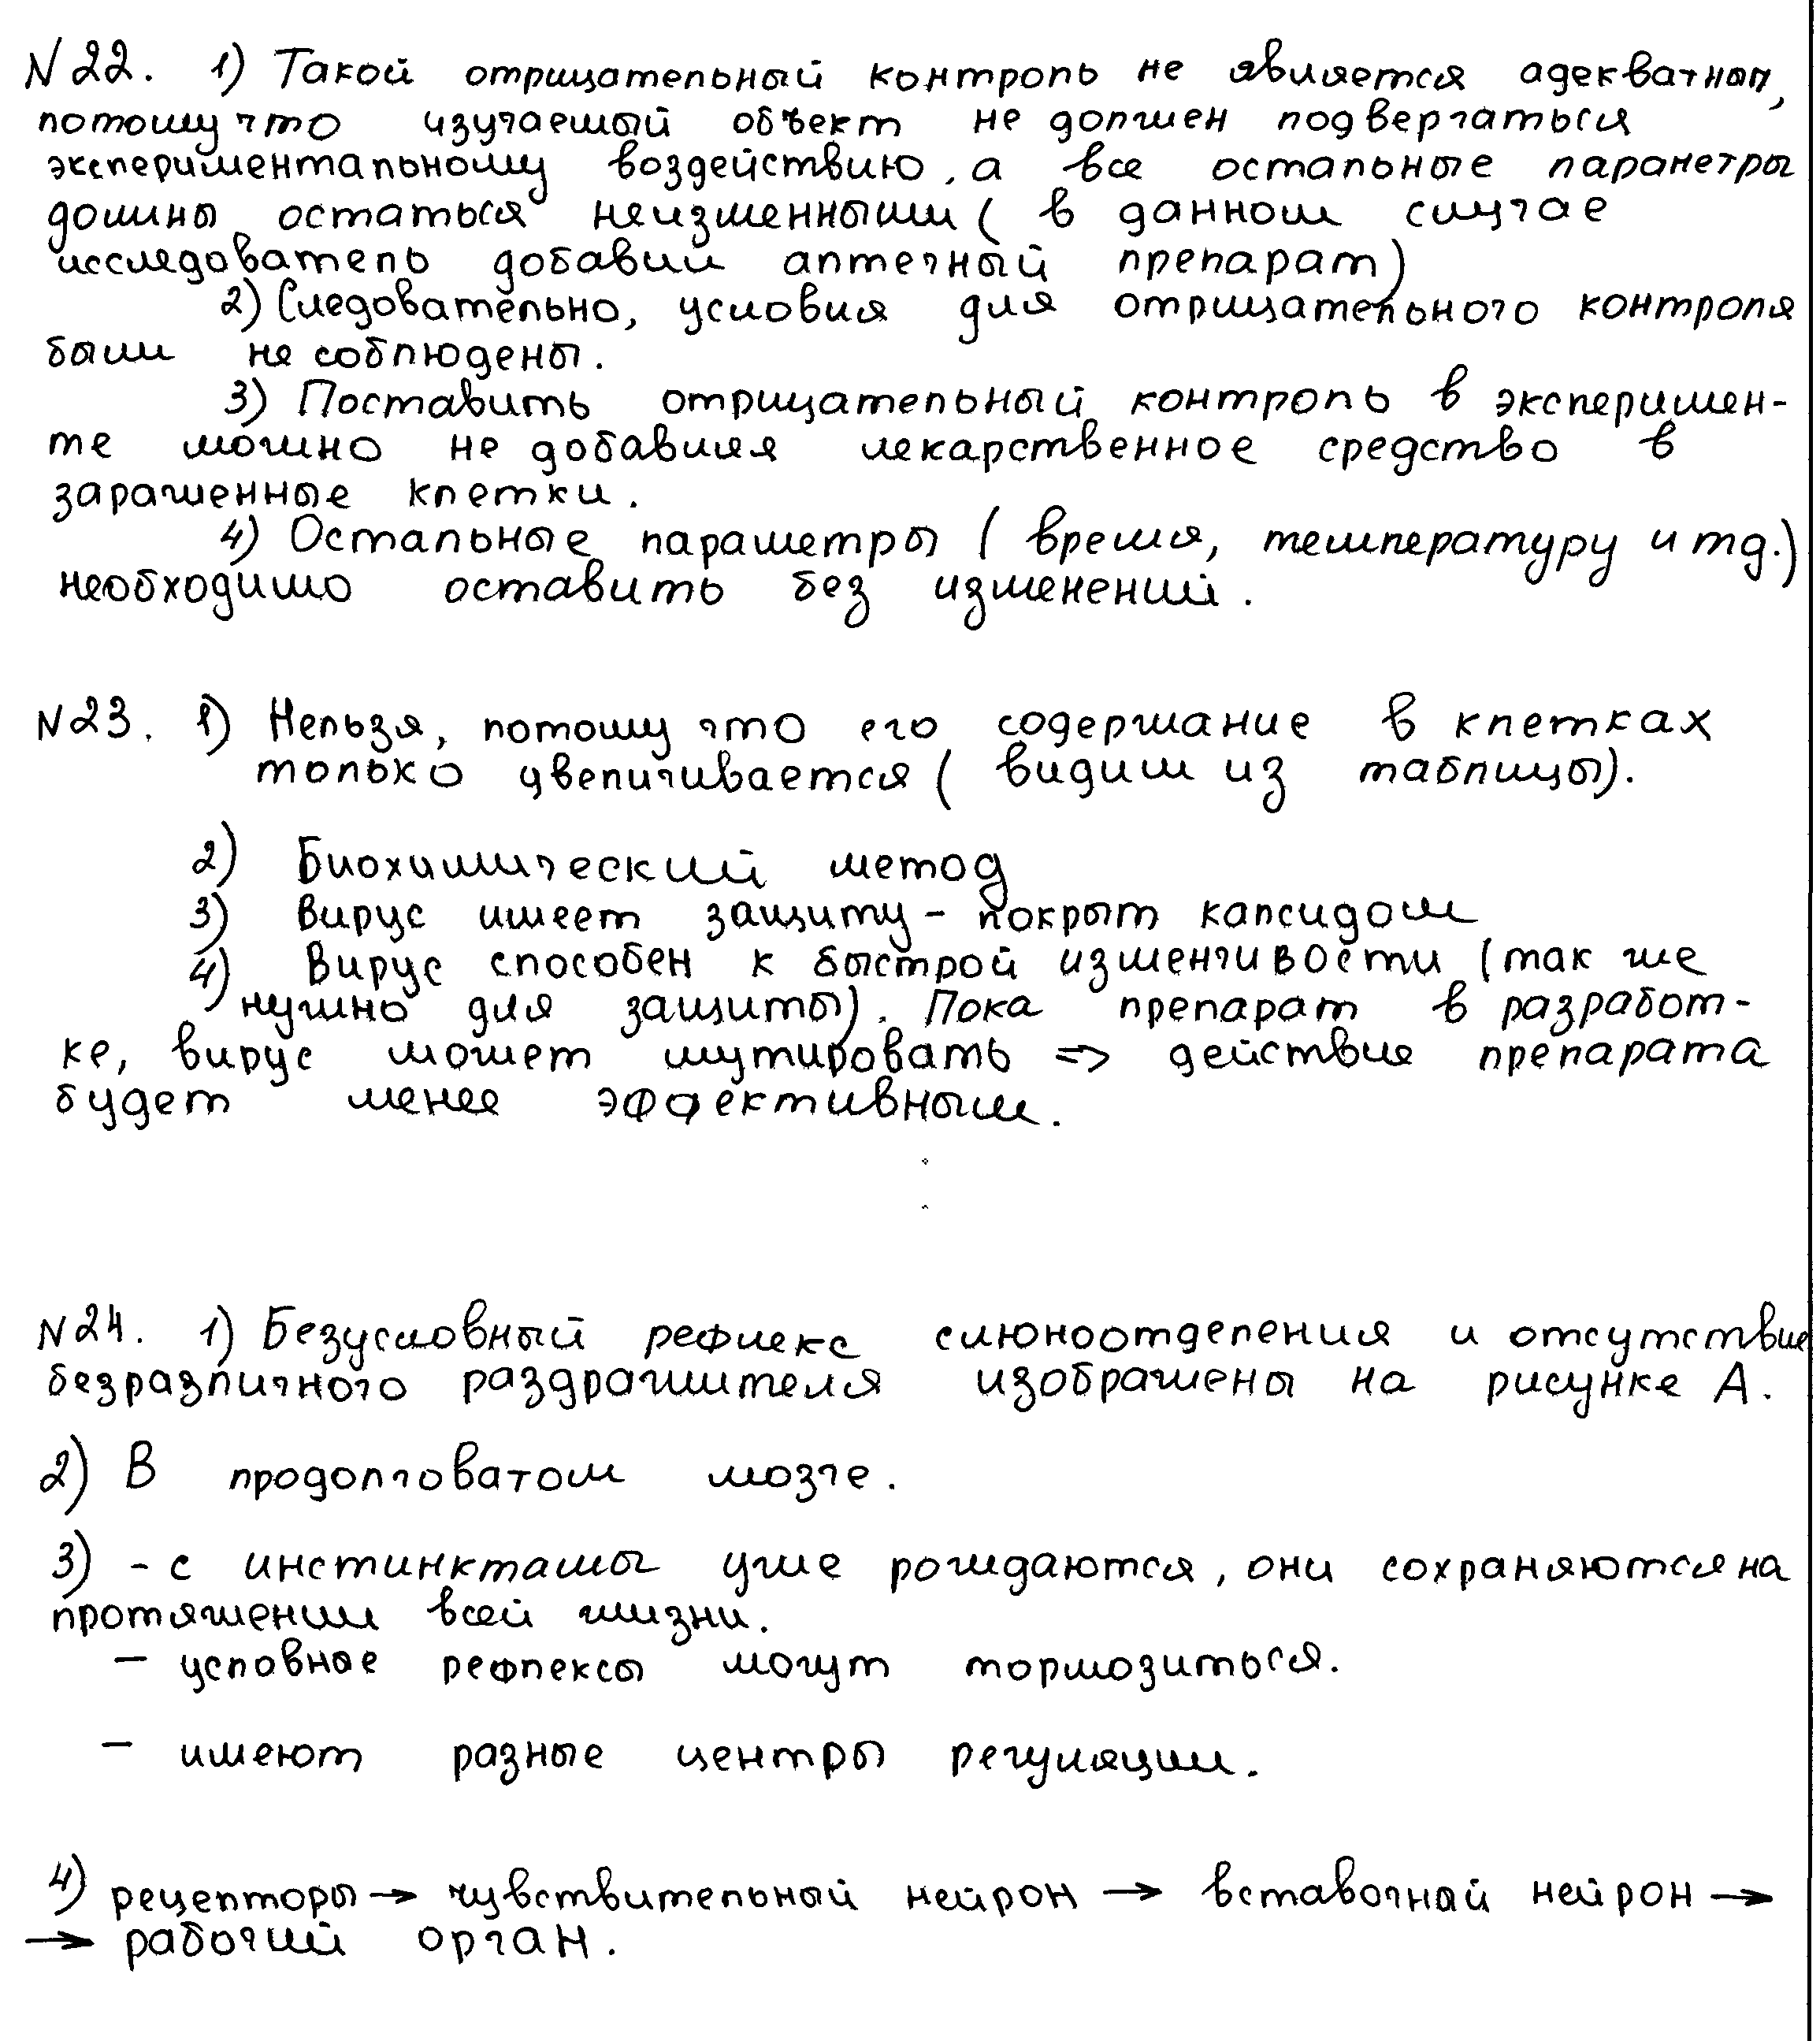 N22. 1) Такой отрицательный контроль не является адекватным,
потому что изучаемый объект не должен подвергаться
экспериментальному воздействию, а все остальные параметры
должны остаться неизменными ( в данном случае
исследователь добавил аптечный препарат)
2) Следовательно, условия для отрицательного контроля
были не соблюдены.
3) Поставить отрицательный контроль в эксперимен-
те можно не добавляя лекарственное средство в
зараженные клетки.
4) Остальные параметры ( время, температуру и тд.)
необходимо оставить без изменений.
N23. 1) Нельзя, потому что его содержание в клетках
только увеличивается ( видим из таблицы).
2) Биохимический метод
3) Вирус имеет защиту - покрыт капсидом
4) Вирус способен к быстрой изменчивости (так же
нужно для защиты). Пока препарат в разработ-
ке, вирус может мутировать => действие препарата
будет менее эффективным.
N24. 1) Безусловный рефлекс слюноотделения и отсутствие
безразличного раздражителя изображены на рисунке А.
2) В продолговатом мозге.
3) - с инстинктами уже рождаются, они сохраняются на
протяжении всей жизни.
- условные рефлексы могут тормозиться.
- имеют разные центры регуляции.
4) рецепторы → чувствительный нейрон → вставочный нейрон →
→ рабочий орган.